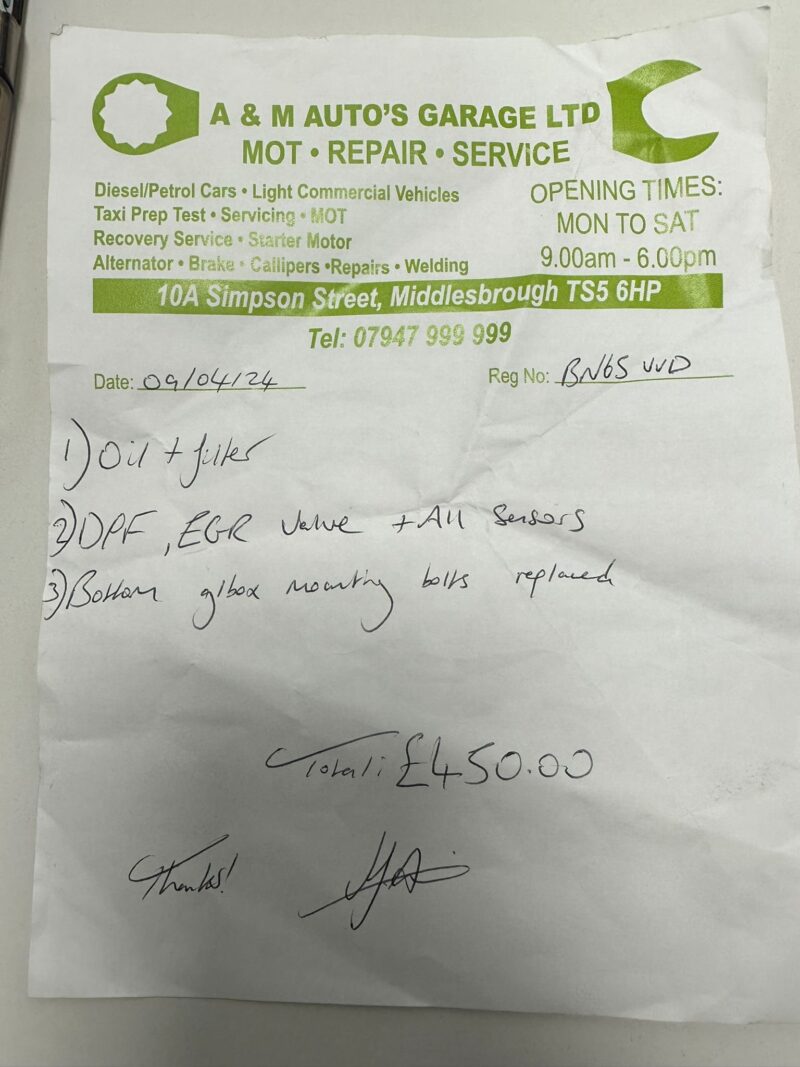 A & M AUTO'S GARAGE LTD
MOT • REPAIR • SERVICE
Diesel/Petrol Cars • Light Commercial Vehicles
Taxi Prep Test • Servicing • MOT
Recovery Service • Starter Motor
Alternator • Brake • Callipers •Repairs • Welding
OPENING TIMES:
MON TO SAT
9.00am - 6.00pm
10A Simpson Street, Middlesbrough TS5 6HP
Tel: 07947 999 999
Date: 09/04/24
Reg No: BN65 VVD
1) Oil + filter
2) DPF, EGR Valve + All Sensors
3) Bottom g/box mounting bolts replaced
Total: £450.00
Thanks!